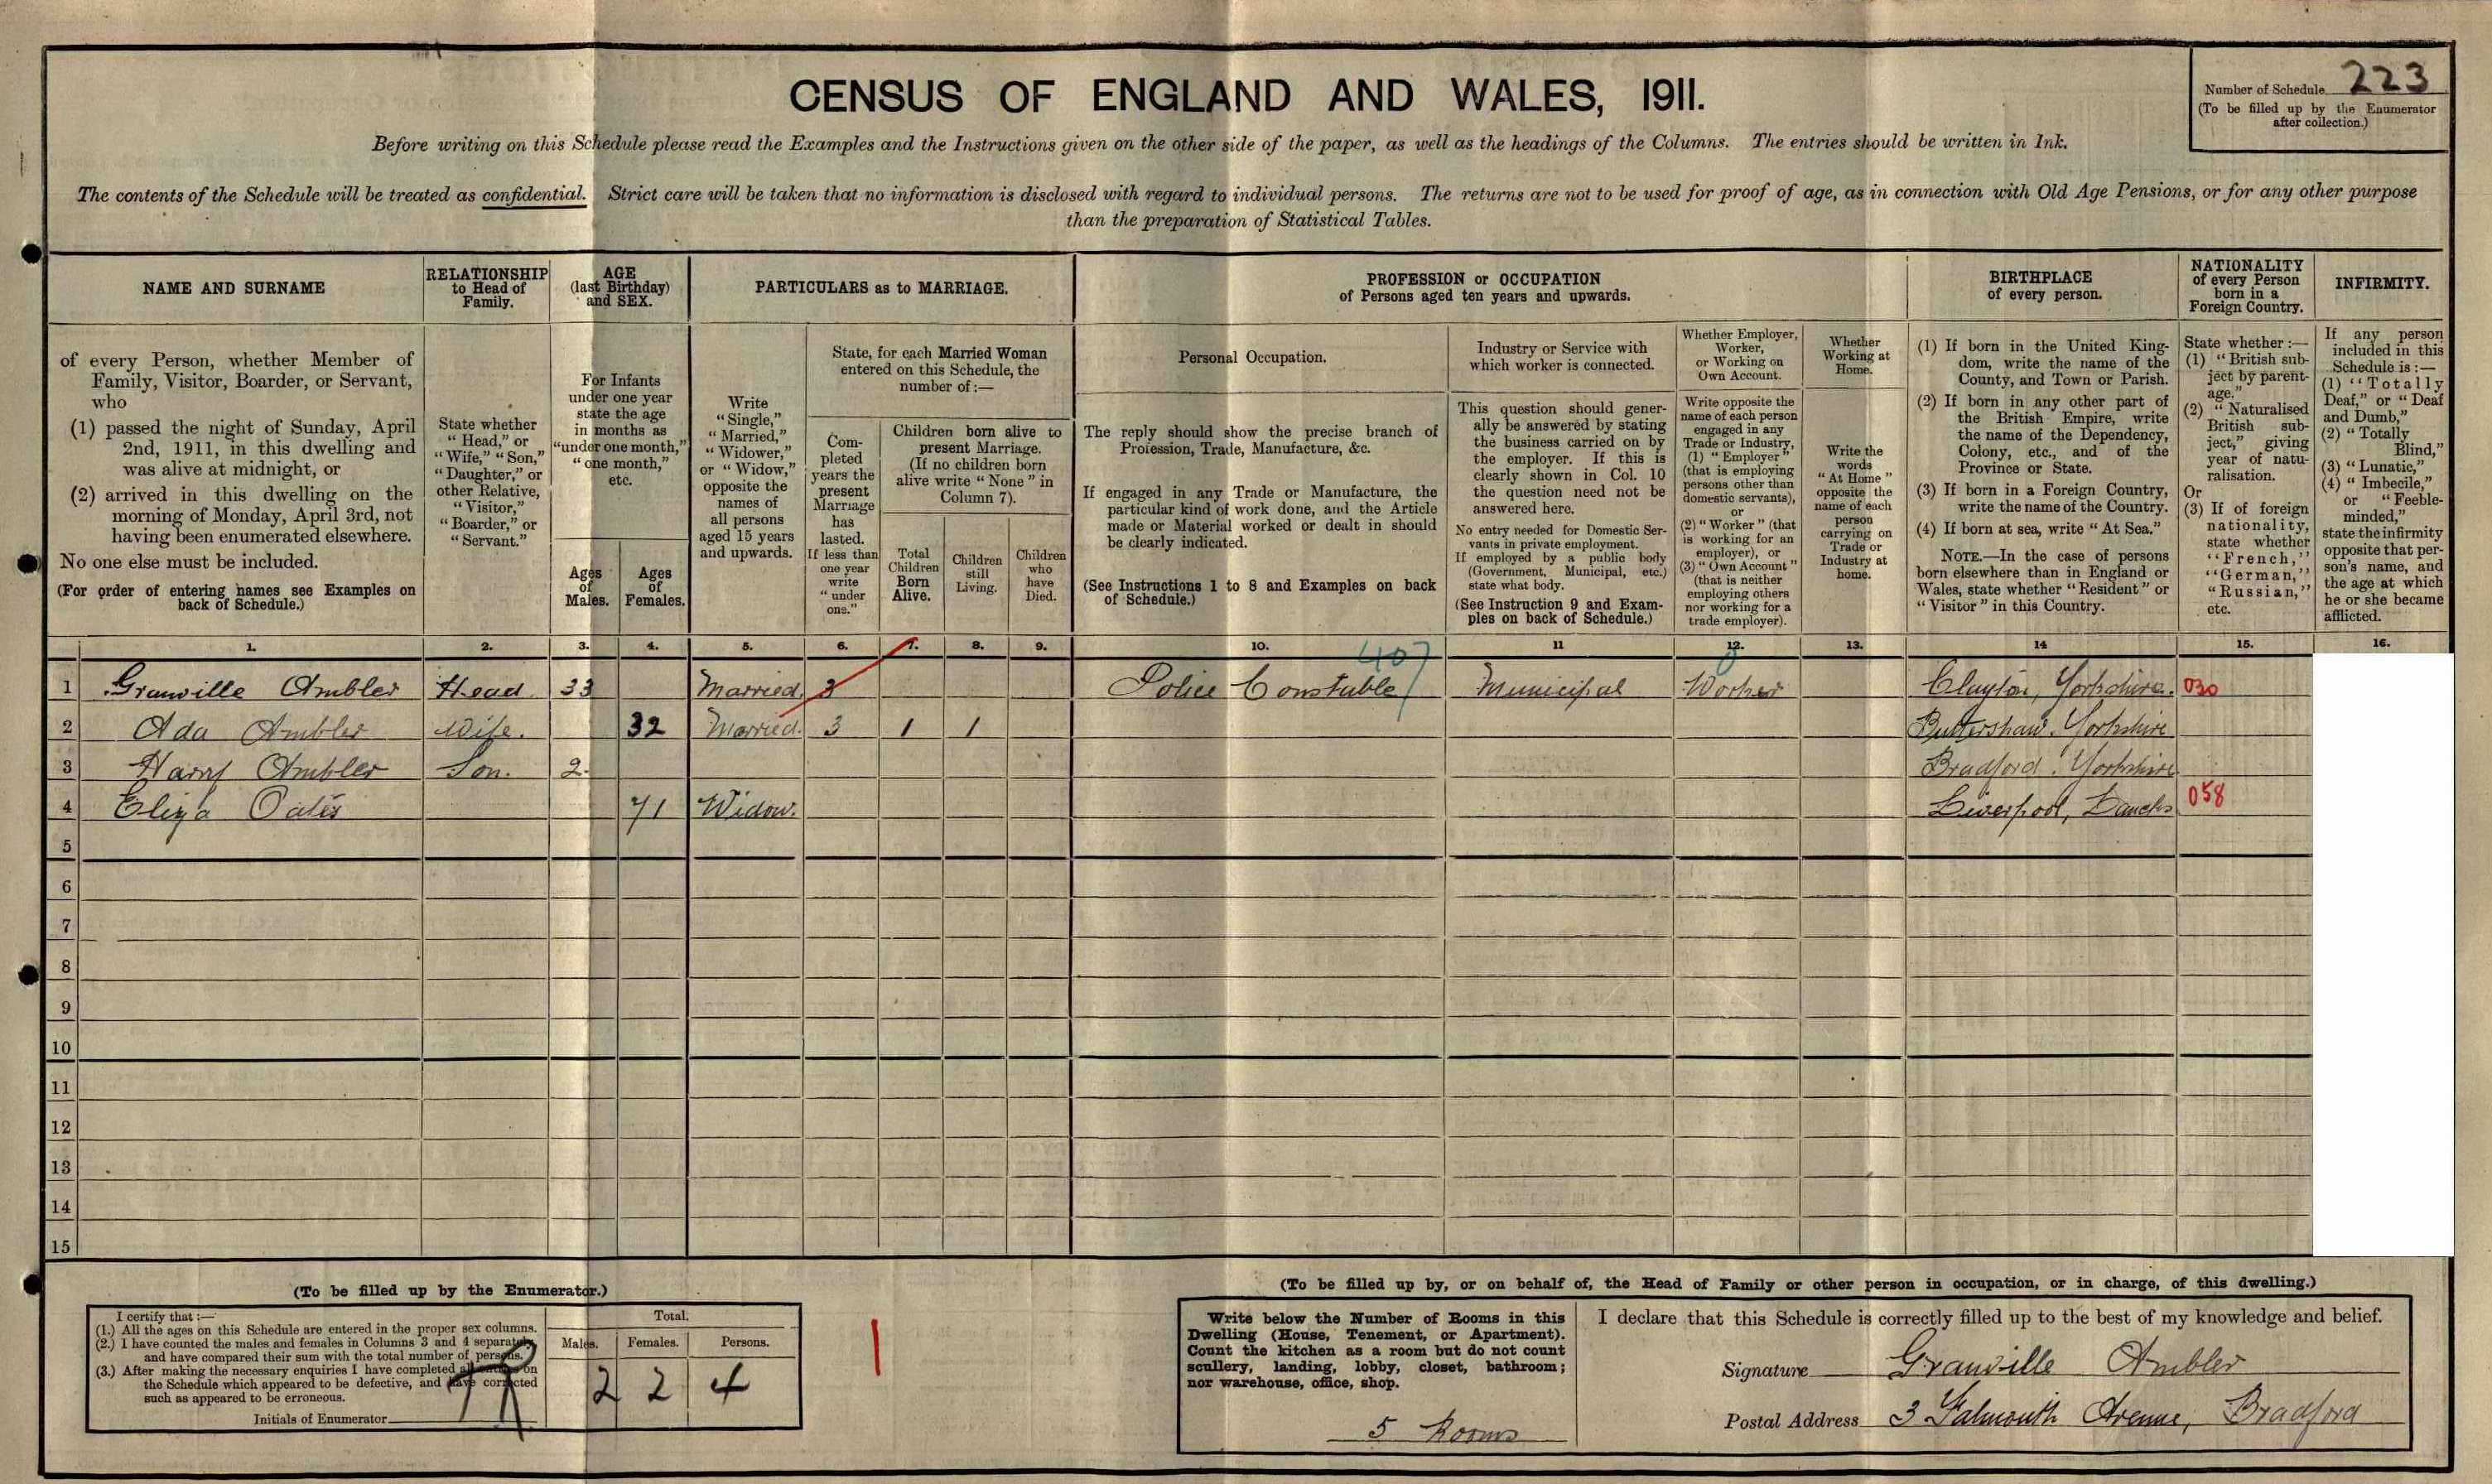 CENSUS OF ENGLAND AND WALES, 1911.
Number of Schedule 223
(To be filled up by the Enumerator
after collection.)
Before writing on this Schedule please read the Examples and the Instructions given on the other side of the paper, as well as the headings of the Columns. The entries should be written in Ink.
The contents of the Schedule will be treated as confidential. Strict care will be taken that no information is disclosed with regard to individual persons. The returns are not to be used for proof of age, as in connection with Old Age Pensions, or for any other purpose
than the preparation of Statistical Tables.
NAME AND SURNAME
of every Person, whether Member of
Family, Visitor, Boarder, or Servant,
who
(1) passed the night of Sunday, April
2nd, 1911, in this dwelling and
was alive at midnight, or
(2) arrived in this dwelling on the
morning of Monday, April 3rd, not
having been enumerated elsewhere.
No one else must be included.
(For order of entering names see Examples on
back of Schedule.)
RELATIONSHIP
to Head of
Family.
State whether
"Head," or
"Wife," "Son,"
"Daughter," or
other Relative,
"Visitor,"
"Boarder," or
"Servant."
AGE
(last Birthday)
and SEX.
For Infants
under one year
state the age
in months as
"under one month,"
"one month,"
etc.
Ages
of
Males.
Ages
of
Females.
PARTICULARS as to MARRIAGE.
Write
"Single,"
"Married,"
"Widower,"
or "Widow,"
opposite the
names of
all persons
aged 15 years
and upwards.
State, for each Married Woman
entered on this Schedule, the
number of:—
Com-
pleted
years the
present
Marriage
has
lasted.
If less than
one year
write
"under
one."
Children born alive to
present Marriage.
(If no children born
alive write "None" in
Column 7).
Total
Children
Born
Alive.
Children
still
Living.
Children
who
have
Died.
PROFESSION or OCCUPATION
of Persons aged ten years and upwards.
Personal Occupation.
The reply should show the precise branch of
Profession, Trade, Manufacture, &c.
If engaged in any Trade or Manufacture, the
particular kind of work done, and the Article
made or Material worked or dealt in should
be clearly indicated.
(See Instructions 1 to 8 and Examples on back
of Schedule.)
Industry or Service with
which worker is connected.
This question should gener-
ally be answered by stating
the business carried on by
the employer. If this is
clearly shown in Col. 10
the question need not be
answered here.
No entry needed for Domestic Ser-
vants in private employment.
If employed by a public body
(Government, Municipal, etc.)
state what body.
(See Instruction 9 and Exam-
ples on back of Schedule.)
Whether Employer,
Worker,
or Working on
Own Account.
Write opposite the
name of each person
engaged in any
Trade or Industry,
(1) "Employer"
(that is employing
persons other than
domestic servants),
or
(2) "Worker" (that
is working for an
employer), or
(3) "Own Account"
(that is neither
employing others
nor working for a
trade employer).
Whether
Working at
Home.
Write the
words
"At Home"
opposite the
name of each
person
carrying on
Trade or
Industry at
home.
BIRTHPLACE
of every person.
(1) If born in the United King-
dom, write the name of the
County, and Town or Parish.
(2) If born in any other part of
the British Empire, write
the name of the Dependency,
Colony, etc., and of the
Province or State.
(3) If born in a Foreign Country,
write the name of the Country.
(4) If born at sea, write "At Sea."
NOTE.—In the case of persons
born elsewhere than in England or
Wales, state whether "Resident" or
"Visitor" in this Country.
NATIONALITY
of every Person
born in a
Foreign Country.
State whether :—
(1) "British sub-
ject by parent-
age."
(2) "Naturalised
British sub-
ject," giving
year of natu-
ralisation.
Or
(3) If of foreign
nationality,
state whether
"French,"
"German,"
"Russian,"
etc.
INFIRMITY.
If any person
included in this
Schedule is :—
(1) "Totally
Deaf," or "Deaf
and Dumb,"
(2) "Totally
Blind,"
(3) "Lunatic,"
(4) "Imbecile,"
or "Feeble-
minded,"
state the infirmity
opposite that per-
son's name, and
the age at which
he or she became
afflicted.
1. 2. 3. 4. 5. 6. 7. 8. 9. 10. 11 12. 13. 14 15. 16.
407
0
1 Granville Ambler Head 33 Married 3 Police Constable Municipal Worker Clayton, Yorkshire. 030
2 Ada Ambler Wife. 32 Married. 3 1 1 Buttershaw. Yorkshire
3 Harry Ambler Son. 2. Bradford. Yorkshire
4 Eliza Oates 71 Widow. Liverpool, Lancks 058
5
6
7
8
9
10
11
12
13
14
15
(To be filled up by the Enumerator.)
I certify that :—
(1.) All the ages on this Schedule are entered in the proper sex columns.
(2.) I have counted the males and females in Columns 3 and 4 separately,
and have compared their sum with the total number of persons.
(3.) After making the necessary enquiries I have completed all entries on
the Schedule which appeared to be defective, and have corrected
such as appeared to be erroneous.
Initials of Enumerator
Total.
Males. Females. Persons.
2 2 4
(To be filled up by, or on behalf of, the Head of Family or other person in occupation, or in charge, of this dwelling.)
Write below the Number of Rooms in this
Dwelling (House, Tenement, or Apartment).
Count the kitchen as a room but do not count
scullery, landing, lobby, closet, bathroom;
nor warehouse, office, shop.
5 Rooms
I declare that this Schedule is correctly filled up to the best of my knowledge and belief.
Signature Granville Ambler
Postal Address 3 Falmouth Avenue, Bradford